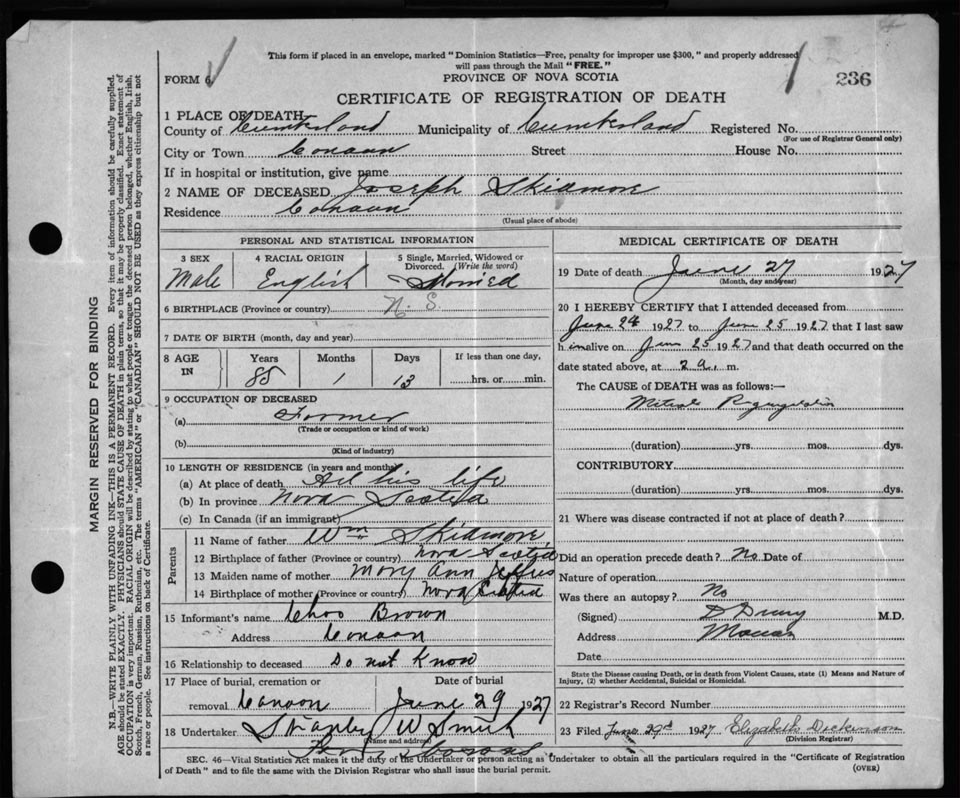 This form if placed in an envelope, marked "Dominion Statistics—Free, penalty for improper use $300," and properly addressed
will pass through the Mail "FREE."
FORM 6
PROVINCE OF NOVA SCOTIA
236
CERTIFICATE OF REGISTRATION OF DEATH
1 PLACE OF DEATH
County of Cumberland Municipality of Cumberland Registered No.
(For use of Registrar General only)
City or Town Canaan Street House No.
If in hospital or institution, give name
2 NAME OF DECEASED Joseph Skidmore
Residence Canaan
(Usual place of abode)
PERSONAL AND STATISTICAL INFORMATION
3 SEX 4 RACIAL ORIGIN 5 Single, Married, Widowed or Divorced. (Write the word)
Male English Married
6 BIRTHPLACE (Province or country) N. S.
7 DATE OF BIRTH (month, day and year)
8 AGE IN Years Months Days If less than one day,
85 1 13 hrs. or min.
9 OCCUPATION OF DECEASED
(a) Farmer
(Trade or occupation or kind of work)
(b)
(Kind of industry)
10 LENGTH OF RESIDENCE (in years and months)
(a) At place of death All his life
(b) In province Nova Scotia
(c) In Canada (if an immigrant)
Parents
11 Name of father Wm Skidmore
12 Birthplace of father (Province or country) Nova Scotia
13 Maiden name of mother Mary Ann
14 Birthplace of mother (Province or country) Nova Scotia
15 Informant's name Brown
Address Canaan
16 Relationship to deceased Do not Know
17 Place of burial, cremation or removal Canaan
Date of burial June 29 1927
18 Undertaker Stanley W Smith
(Name and address)
MEDICAL CERTIFICATE OF DEATH
19 Date of death June 27 1927
(Month, day and year)
20 I HEREBY CERTIFY that I attended deceased from
June 24 1927 to June 25 1927 that I last saw
him alive on June 25 1927 and that death occurred on the
date stated above, at 2 a. m.
The CAUSE of DEATH was as follows:—
Mitral
(duration) yrs. mos. dys.
CONTRIBUTORY
(duration) yrs. mos. dys.
21 Where was disease contracted if not at place of death?
Did an operation precede death? No Date of
Nature of operation
Was there an autopsy? No
(Signed) M.D.
Address
Date
State the Disease causing Death, or in death from Violent Causes, state (1) Means and Nature of Injury, (2) whether Accidental, Suicidal or Homicidal.
22 Registrar's Record Number
23 Filed June 29th 1927 Elizabeth Dickinson
(Division Registrar)
SEC. 46—Vital Statistics Act makes it the duty of the Undertaker or person acting as Undertaker to obtain all the particulars required in the "Certificate of Registration
of Death" and to file the same with the Division Registrar who shall issue the burial permit.
(OVER)
MARGIN RESERVED FOR BINDING
N.B.—WRITE PLAINLY WITH UNFADING INK—THIS IS A PERMANENT RECORD. Every item of information should be carefully supplied.
AGE should be stated EXACTLY. PHYSICIANS should STATE CAUSE OF DEATH in plain terms, so that it may be properly classified. Exact statement of
OCCUPATION is very important. RACIAL ORIGIN will be described by stating to what people or tongue the deceased person belonged, whether English, Irish,
Scotch, French, German, Russian, Ruthenian, etc. The terms "AMERICAN" or "CANADIAN" SHOULD NOT BE USED as they express citizenship but not
a race or people. See instructions on back of Certificate.